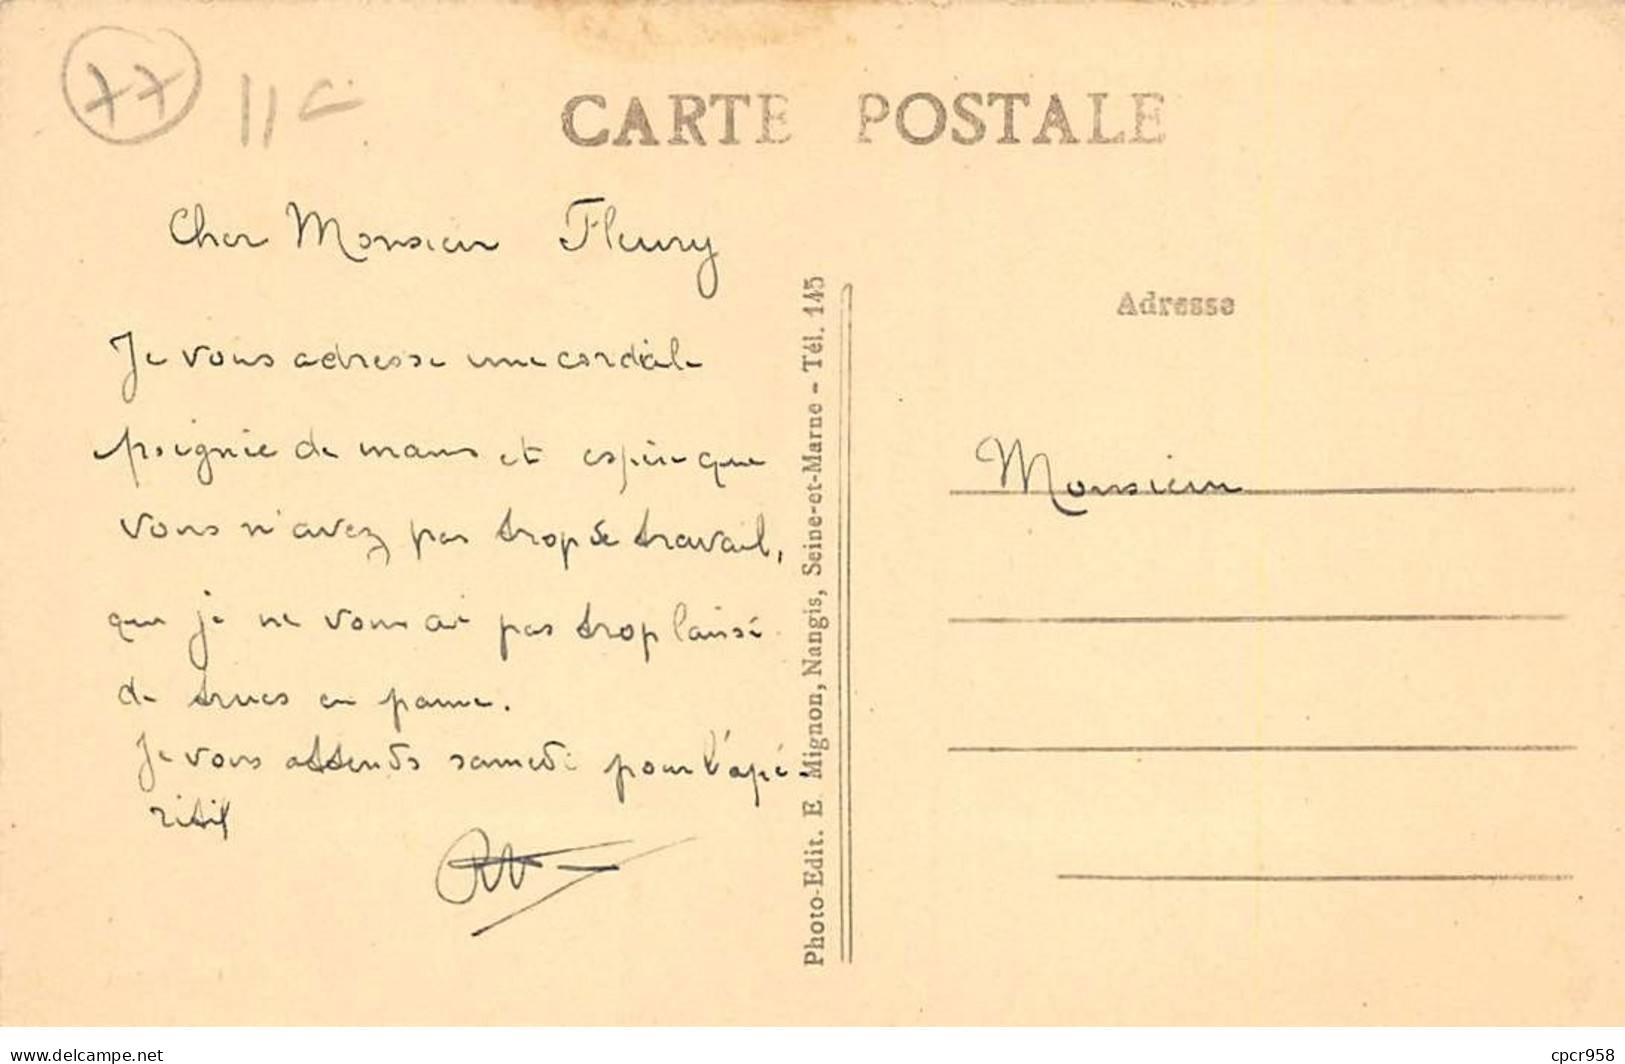 77
11€
CARTE POSTALE
Cher Monsieur Fleury
Je vous adresse une cordiale
poignie de mains et espère que
vous n'avez pas trop de travail,
que je ne vous ai pas trop laissé
de trucs en panne.
Je vous attends samedi pour l'apé-
ritif
Photo-Edit. E. Mignon, Nangis, Seine-et-Marne - Tél. 145
Adresse
Monsieur
www.delcampe.net
cpcr958